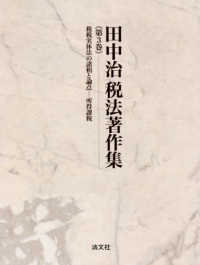 田中治 税法著作集
〈第3巻〉
租税実体法の諸相と論点─所得課税─
清文社